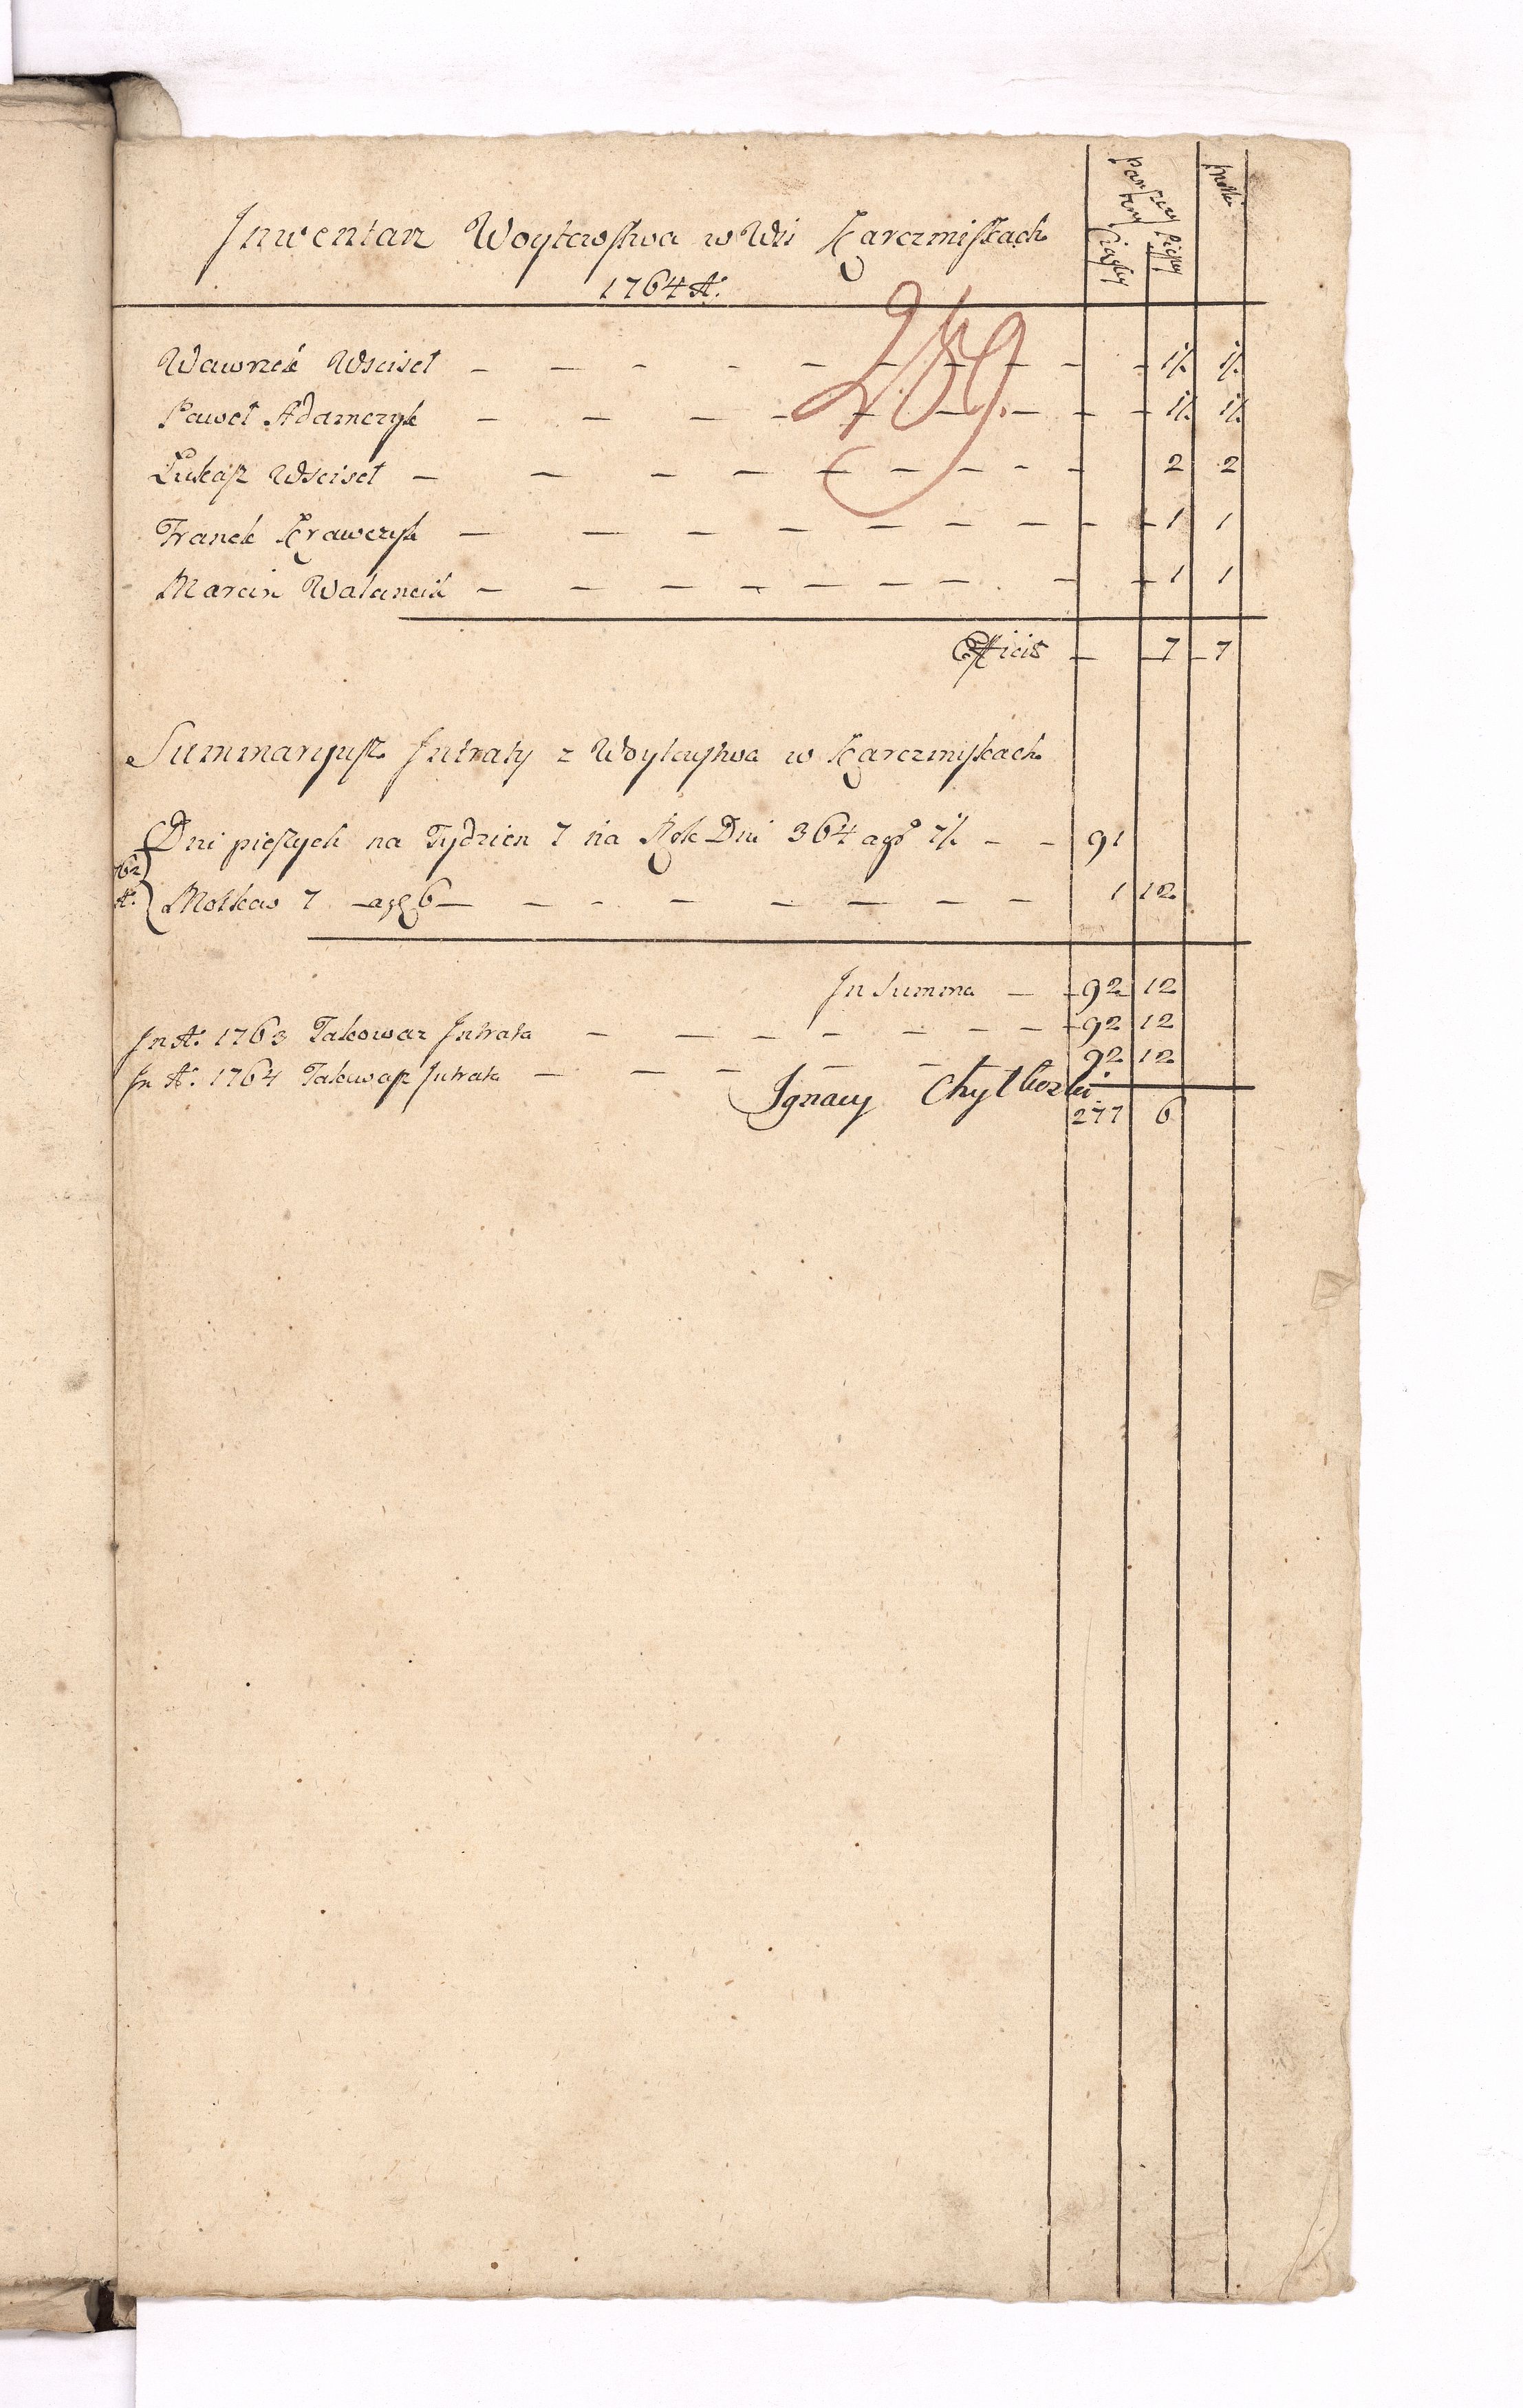 Inwentarz Woytowstwa w Wsi Karczmiskach
1764 A.
Pańszczyzny
Ciągły Pieszy Motki
259
Wawrzek Wscisel — 1½ 1½
Paweł Adamczyk — 1½ 1½
Łukasz Wscisel — 2 2
Franek Krawczyk — 1 1
Marcin Walencik — 1 1
Efficit — 7 7
Summaryusz Intraty z Woytowstwa w Karczmiskach
Dni pieszych na Tydzien 7 na Rok Dni 364 a gr 7½ — 91
Motkow 7 a gr 6 — 1 12
In Summa — 92 12
In A. 1763 Takowaz Intrata — 92 12
In A. 1764 Takowasz Intrata — 92 12
Ignacy
277 6